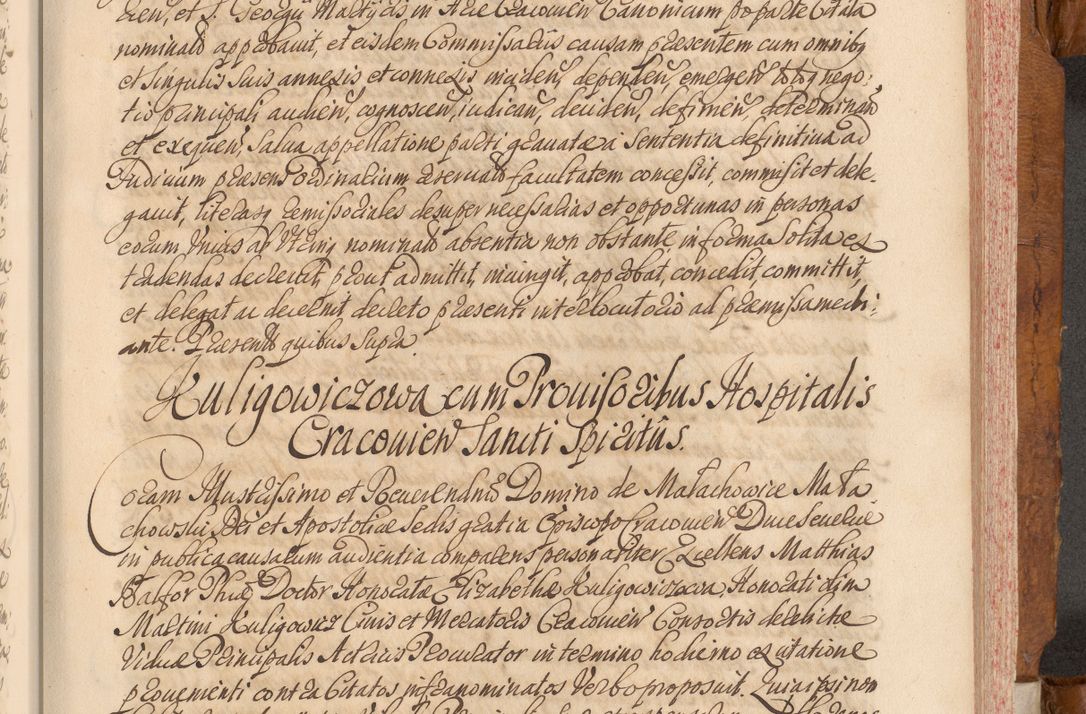 et S. Georgii Martyris in Arce Cracovien Canonicum pro parte Citata
nominato approbavit, et eisdem Commissariis causam praesentem cum omnibq
et singulis suis annexis et connexis inciden, dependen, emergen totoq nego:
tio principali audien, cognoscen, iudican, deciden, definien, determinan
et exequen, Salva appellatione parti gravatae à Sententia definitiva ad
Iudicium praesens Ordinarium reservata facultatem concessit, commisit et dele-
gavit, literasq remissoriales desuper necessarias et opportunas in personas
eorum Unius ab Utrinq nominato absentia non obstante in forma Solita ex
tradendas decrevit, prout admittit, iniungit, approbat, concedit, committit,
et delegat ac decernit decreto praesenti interlocutorio ad praemissa medi:
ante. Praesentib quibus supra.
Kuligowiczowa cum Provisoribus Hospitalis
Cracovien Sancti Spiritûs.
Coram Illustrissimo et Reverendno Domino de Małachowice Mała
chowski Dei et Apostolicae Sedis gratia Episcopo Cracovien Duce Severiae
in publica causarum audientia comparens personaliter Excellens Matthias
Balfor Phiae Doctor Honoratae Elizabethae Kuligowiczowa, Honorati olim
Martini Kuligowicz Civis et Mercatoris Cracovien Consortis derelictae
Viduae Principalis Actricis Procurator in termino hodierno ex citatione
provenienti contra Citatos infranominatos Verbo proposuit. Quia ipsi non